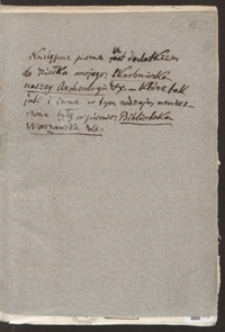 Następne pisma są dodatkiem
do dziełka mojego: Skarbniczka
naszej Archeologii &x. — które tak
jak i inne w tym rodzaju umiesz-
czone były w piśmie: Biblioteka
Warszawska &x.